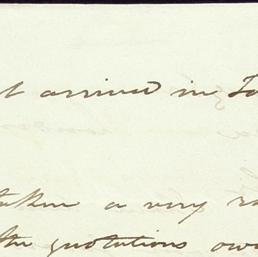 arrived in
taken a very
the quotations